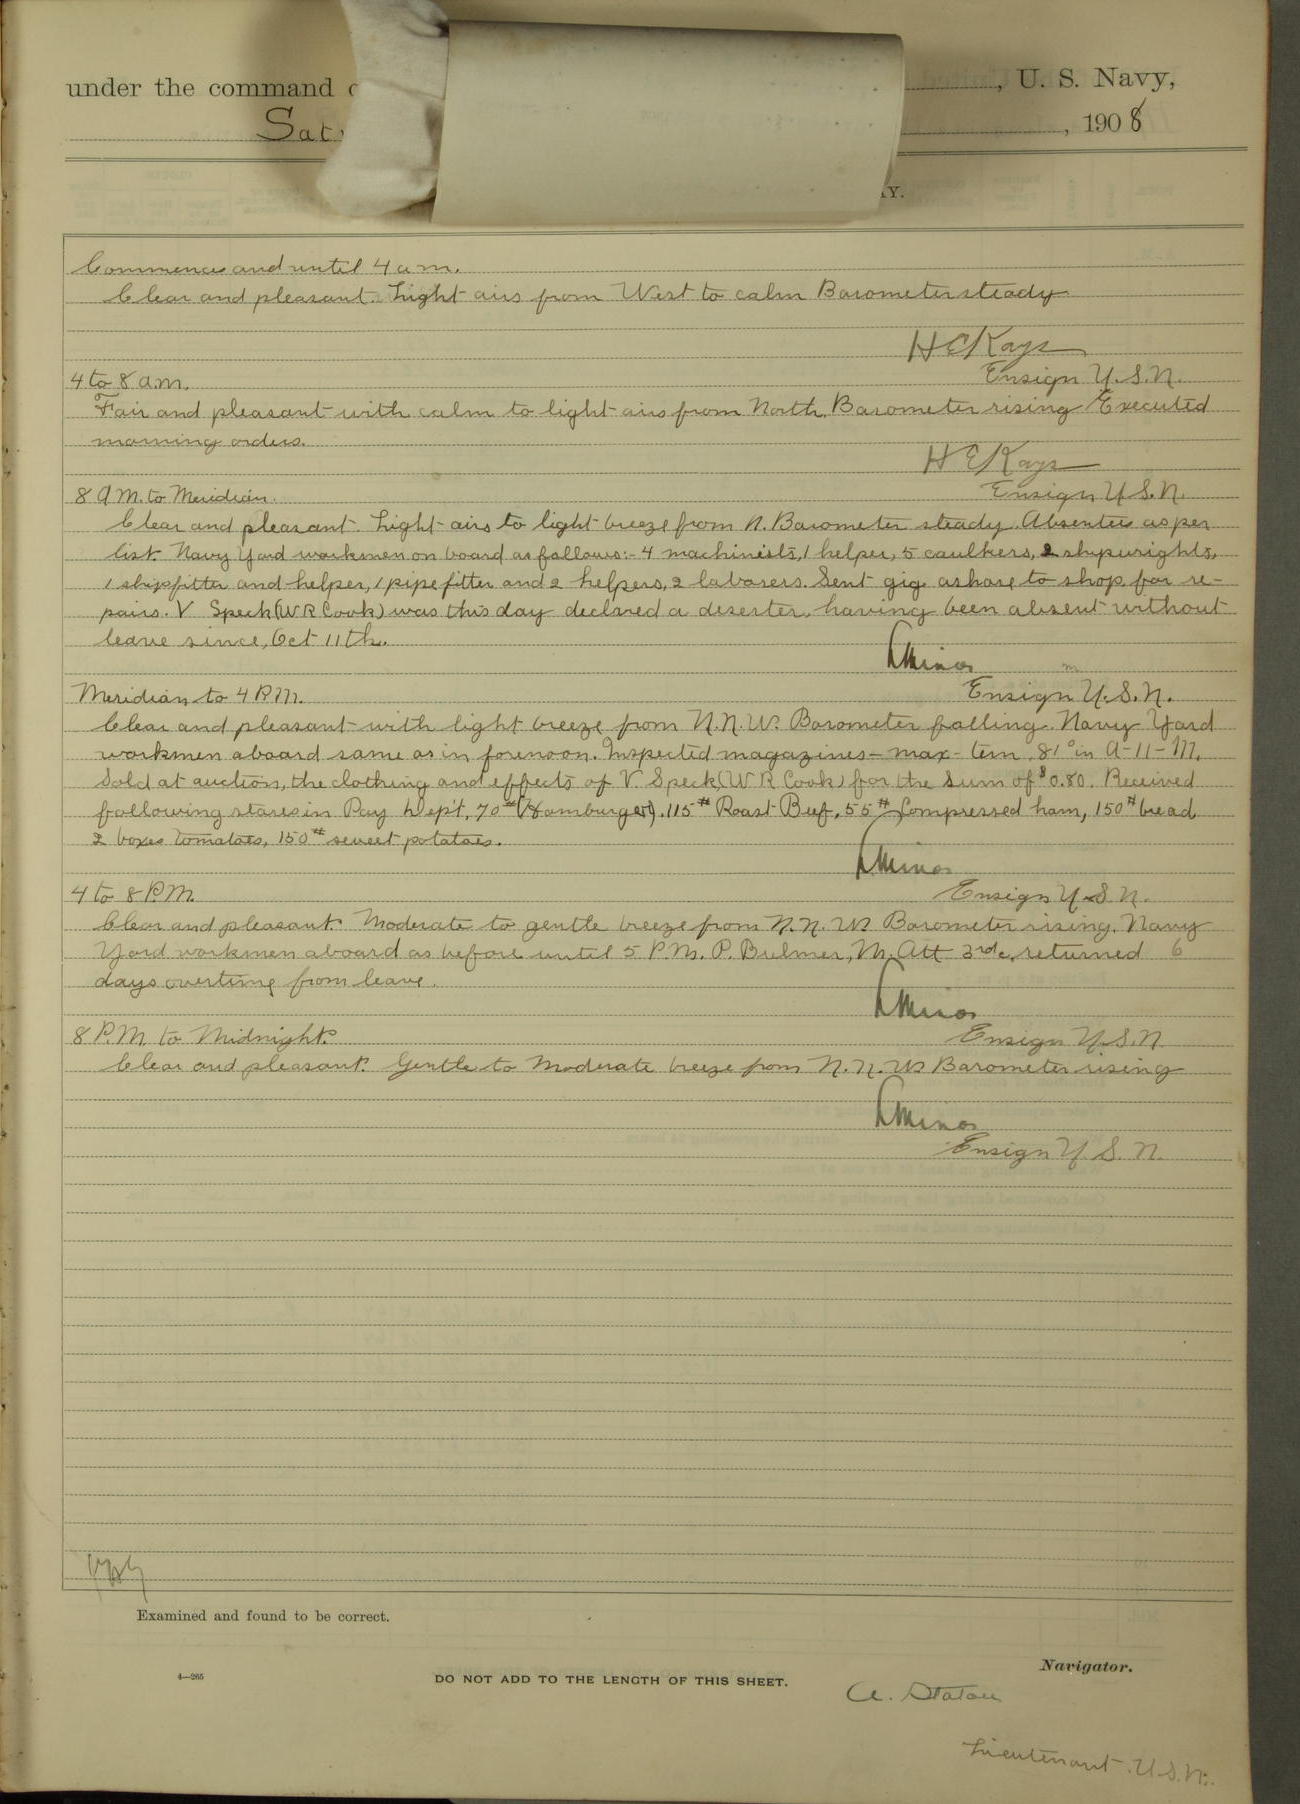 under the command
, U. S. Navy,
Sat
, 1908
AY.
Commences and until 4 a m.
Clear and pleasant. Light airs from West to calm Barometer steady
H E Kays
Ensign U.S.N.
4 to 8 a.m.
Fair and pleasant with calm to light airs from North. Barometer rising Executed
morning orders.
H E Kays
Ensign U.S.N.
8 A M. to Meridian.
Clear and pleasant. Light airs to light breeze from N. Barometer steady. Absentees as per
list. Navy Yard workmen on board as follows:- 4 machinists, 1 helper, 5 caulkers, 2 shipwrights,
1 shipfitter and helper, 1 pipefitter and 2 helpers, 2 laborers. Sent gig ashore to shop for re-
pairs. V Speck (W R Cook) was this day declared a deserter, having been absent without
leave since, Oct 11th.
L Minor
Ensign U.S.N.
Meridian to 4 P.M.
Clear and pleasant with light breeze from N.N.W. Barometer falling. Navy Yard
workmen aboard same as in forenoon. Inspected magazines - max - tem. 81° in A-11-M.
Sold at auction, the clothing and effects of V. Speck (W R Cook) for the sum of $0.80. Received
following stores in Pay Dep't, 70# (Hamburger). 115# Roast Beef, 55# Compressed ham, 150# bread
2 boxes tomatoes, 150# sweet potatoes.
L Minor
Ensign U.S.N.
4 to 8 P.M.
Clear and pleasant. Moderate to gentle breeze from N.N.W. Barometer rising. Navy
Yard workmen aboard as before until 5 P.M. P. Bulmer, M. Att 3rd c, returned 6
days overtime from leave.
L Minor
Ensign U.S.N
8 P.M. to Midnight.
Clear and pleasant. Gentle to Moderate breeze from N.N.W. Barometer rising
L Minor
Ensign U.S.N.
Examined and found to be correct.
4—265
DO NOT ADD TO THE LENGTH OF THIS SHEET.
Navigator.
A. Staton
Lieutenant. U.S.N.